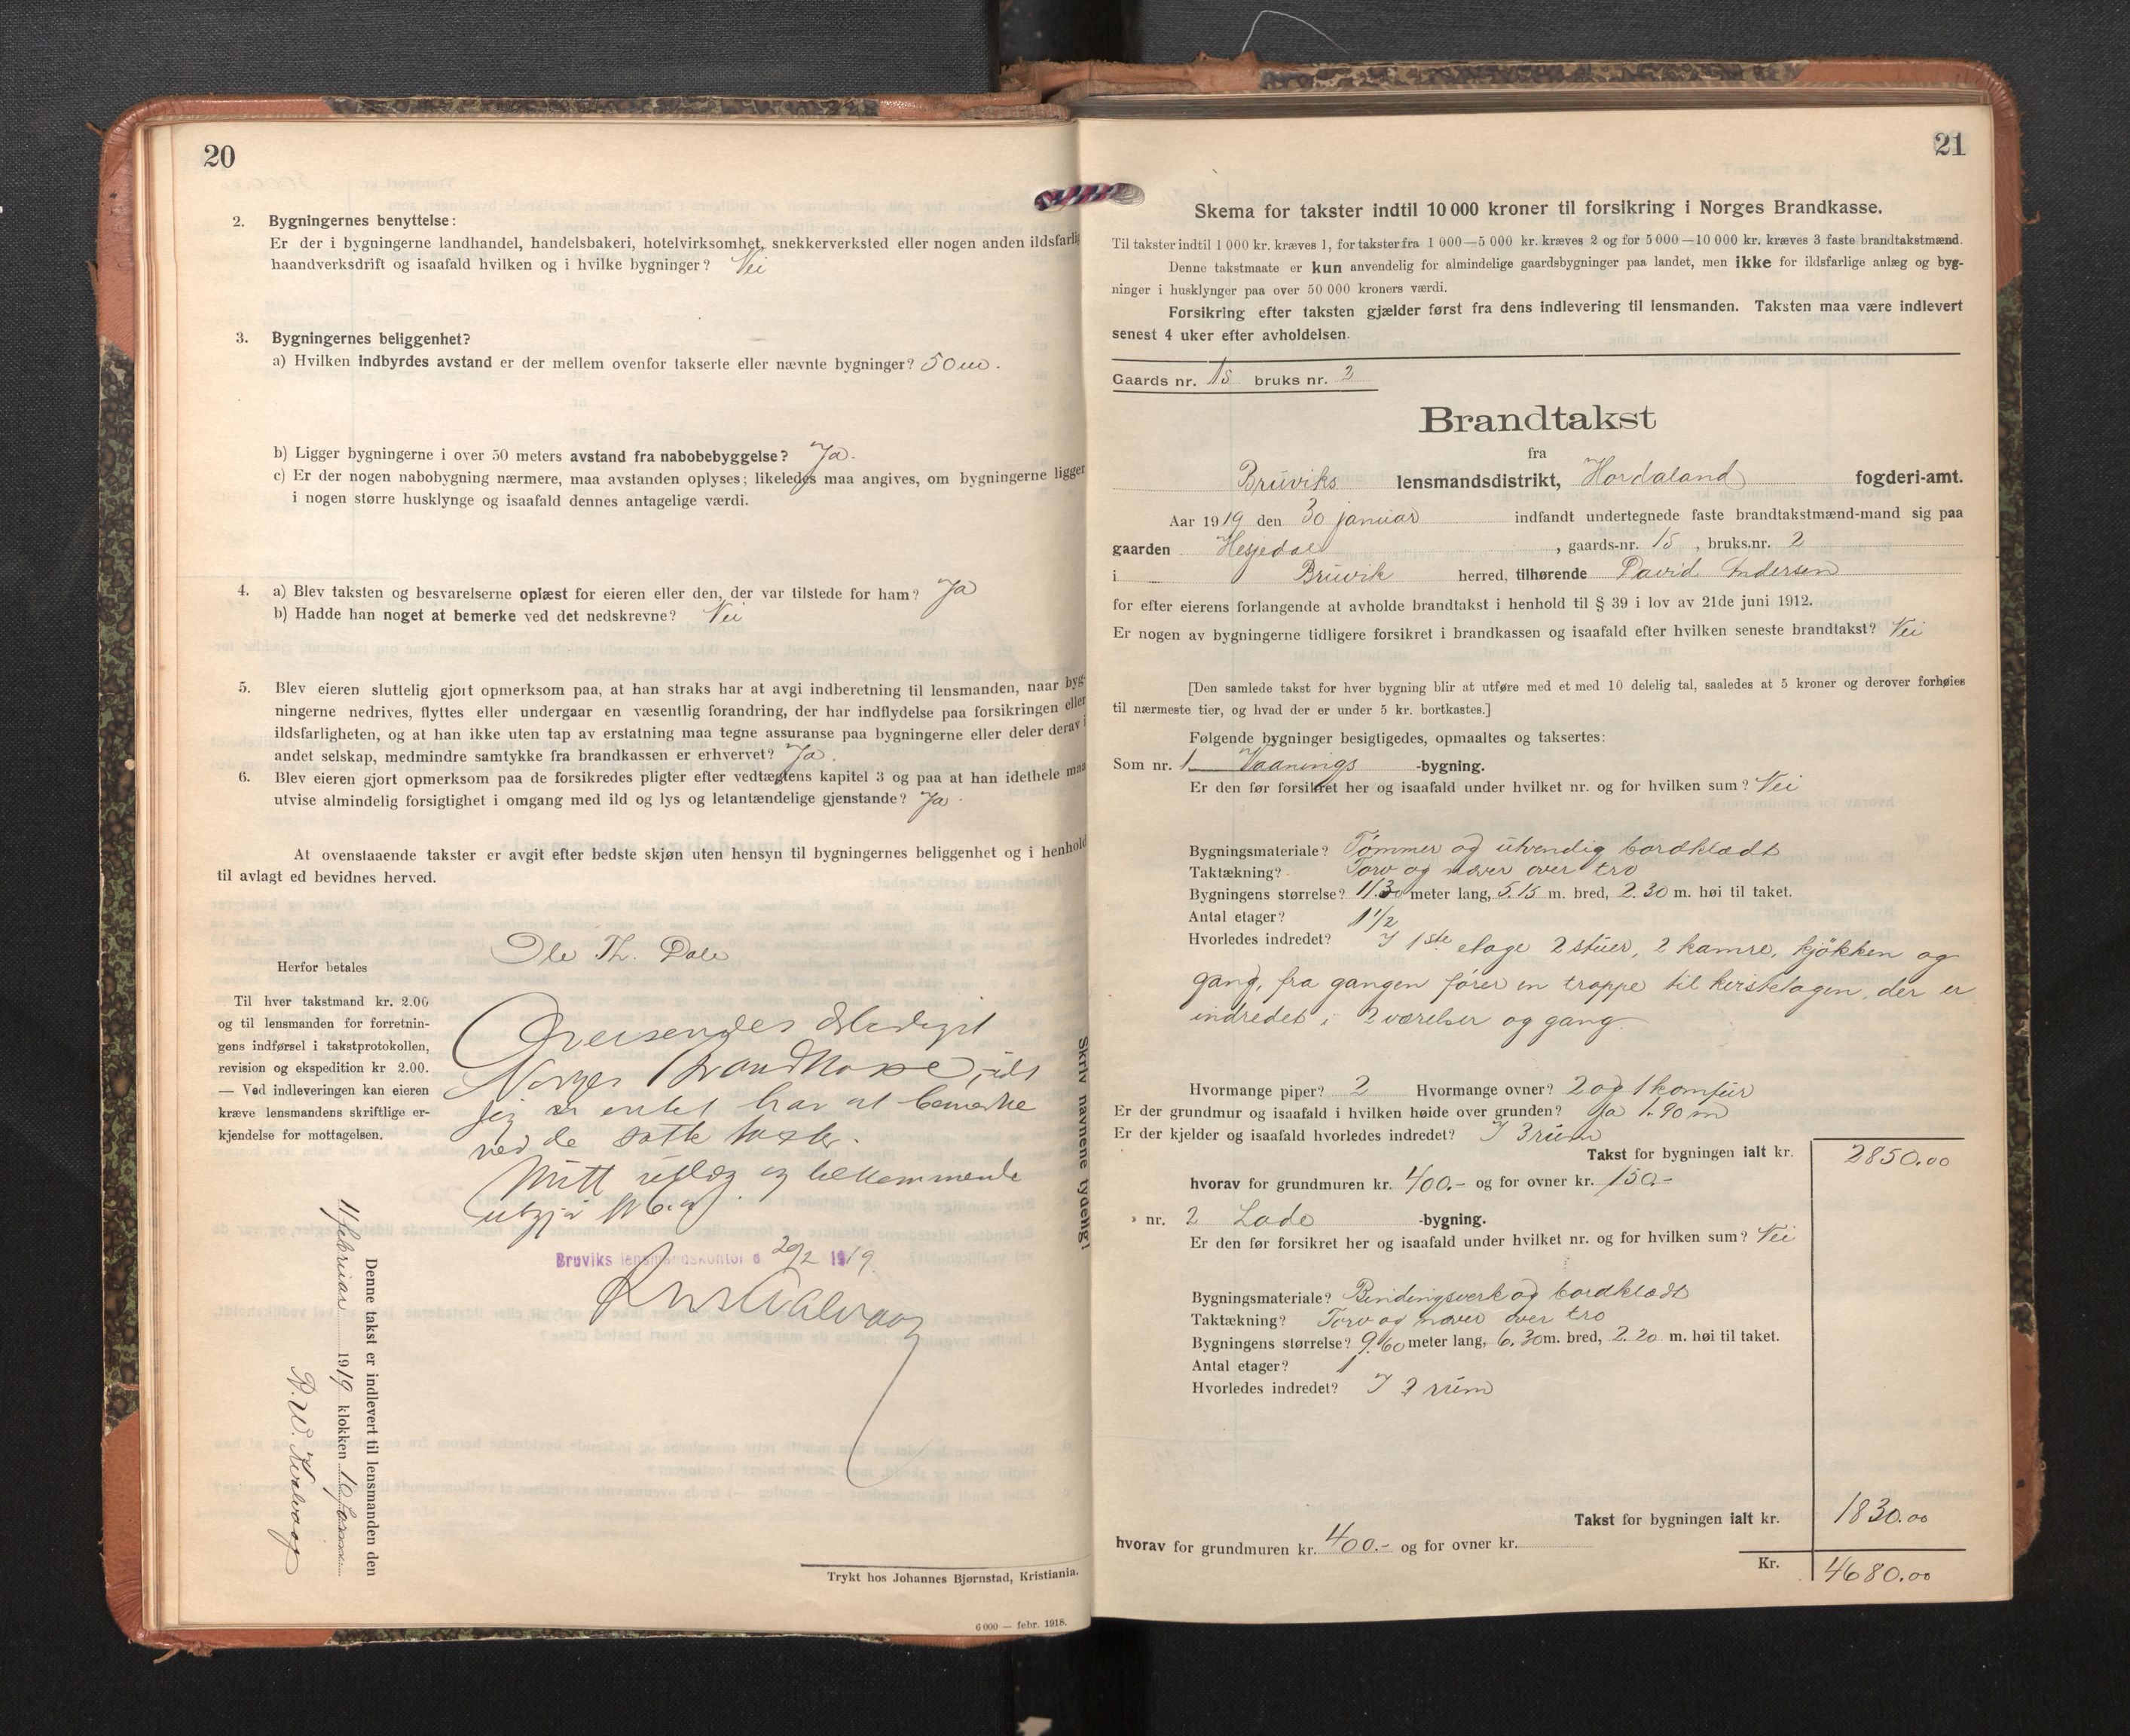 20
2. Bygningernes benyttelse:
Er der i bygningerne landhandel, handelsbakeri, hotelvirksomhet, snekkerverksted eller nogen anden ildsfarlig
haandverksdrift og isaafald hvilken og i hvilke bygninger? Nei
3. Bygningernes beliggenhet?
a) Hvilken indbyrdes avstand er der mellem ovenfor takserte eller nævnte bygninger? 50 m.
b) Ligger bygningerne i over 50 meters avstand fra nabobebyggelse? Ja.
c) Er der nogen nabobygning nærmere, maa avstanden oplyses; likeledes maa angives, om bygningerne ligger
i nogen større husklynge og isaafald dennes antagelige værdi.
4. a) Blev taksten og besvarelserne oplæst for eieren eller den, der var tilstede for ham? Ja
b) Hadde han noget at bemerke ved det nedskrevne? Nei
5. Blev eieren sluttelig gjort opmerksom paa, at han straks har at avgi indberetning til lensmanden, naar byg-
ningerne nedrives, flyttes eller undergaar en væsentlig forandring, der har indflydelse paa forsikringen eller
ildsfarligheten, og at han ikke uten tap av erstatning maa tegne assuranse paa bygningerne eller deler derav i
andet selskap, medmindre samtykke fra brandkassen er erhvervet? Ja.
6. Blev eieren gjort opmerksom paa de forsikredes pligter efter vedtægtens kapitel 3 og paa at han idethele maa
utvise almindelig forsigtighet i omgang med ild og lys og letantændelige gjenstande? Ja.
At ovenstaaende takster er avgit efter bedste skjøn uten hensyn til bygningernes beliggenhet og i henhold
til avlagt ed bevidnes herved.
Ole Th. Dale
Herfor betales
Til hver takstmand kr. 2.00
og til lensmanden for forretnin-
gens indførsel i takstprotokollen,
revision og ekspedition kr 2.00.
— Ved indleveringen kan eieren
kræve lensmandens skriftlige er-
kjendelse for mottagelsen.
Oversendes
Norges Brandkasse, idet
jeg intet har at bemerke
ved de satte takster.
Mitt utlæg og tilkommende
utgjør
Bruviks lensmandskontor d 20/2 1919
Denne takst er indlevert til lensmanden den
11 februar 1919 klokken 10 form.
Skriv navnene tydelig!
Trykt hos Johannes Bjørnstad, Kristiania.
6 000 — febr. 1918.
21
Skema for takster indtil 10 000 kroner til forsikring i Norges Brandkasse.
Til takster indtil 1 000 kr. kræves 1, for takster fra 1 000—5 000 kr. kræves 2 og for 5 000—10 000 kr. kræves 3 faste brandtakstmænd.
Denne takstmaate er kun anvendelig for almindelige gaardsbygninger paa landet, men ikke for ildsfarlige anlæg og byg-
ninger i husklynger paa over 50 000 kroners værdi.
Forsikring efter taksten gjælder først fra dens indlevering til lensmanden. Taksten maa være indlevert
senest 4 uker efter avholdelsen.
Gaards nr. 15 bruks nr. 2
Brandtakst
fra
Bruviks lensmandsdistrikt, Hordaland fogderi-amt.
Aar 1919 den 30 januar indfandt undertegnede faste brandtakstmænd-mand sig paa
gaarden Hesjedal, gaards-nr. 15, bruks.nr. 2
i Bruvik herred, tilhørende David Andersen
for efter eierens forlangende at avholde brandtakst i henhold til § 39 i lov av 21de juni 1912.
Er nogen av bygningerne tidligere forsikret i brandkassen og isaafald efter hvilken seneste brandtakst? Nei
[Den samlede takst for hver bygning blir at utføre med et med 10 delelig tal, saaledes at 5 kroner og derover forhøies
til nærmeste tier, og hvad der er under 5 kr. bortkastes.]
Følgende bygninger besigtigedes, opmaaltes og taksertes:
Som nr. 1 Vaanings -bygning.
Er den før forsikret her og isaafald under hvilket nr. og for hvilken sum? Nei
Bygningsmateriale? Tømmer og utvendig bordklædt
Taktækning? Torv og næver over tro
Bygningens størrelse? 11.30 meter lang, 5.15 m. bred, 2.30 m. høi til taket.
Antal etager? 1 1/2
Hvorledes indredet? I 1ste etage 2 stuer, 2 kamre, kjökken og
gang, fra gangen fører en trappe til kvistetagen, der er
indredet i 2 værelser og gang.
Hvormange piper? 2 Hvormange ovner? 2 og 1 komfur
Er der grundmur og isaafald i hvilken høide over grunden? Ja 1.90 m
Er der kjelder og isaafald hvorledes indredet? I 3 rum
Takst for bygningen ialt kr. 2850.00
hvorav for grundmuren kr. 400.- og for ovner kr. 150.-
» nr. 2 Lade -bygning.
Er den før forsikret her og isaafald under hvilket nr. og for hvilken sum? Nei
Bygningsmateriale? Bindingsverk og bordklædt
Taktækning? Torv og næver over tro
Bygningens størrelse? 9.60 meter lang, 6.30 m. bred, 2.20 m. høi til taket.
Antal etager? 1
Hvorledes indredet? I 3 rum
Takst for bygningen ialt kr. 1830.00
hvorav for grundmuren kr. 400.- og for ovner kr.
Kr. 4680.00